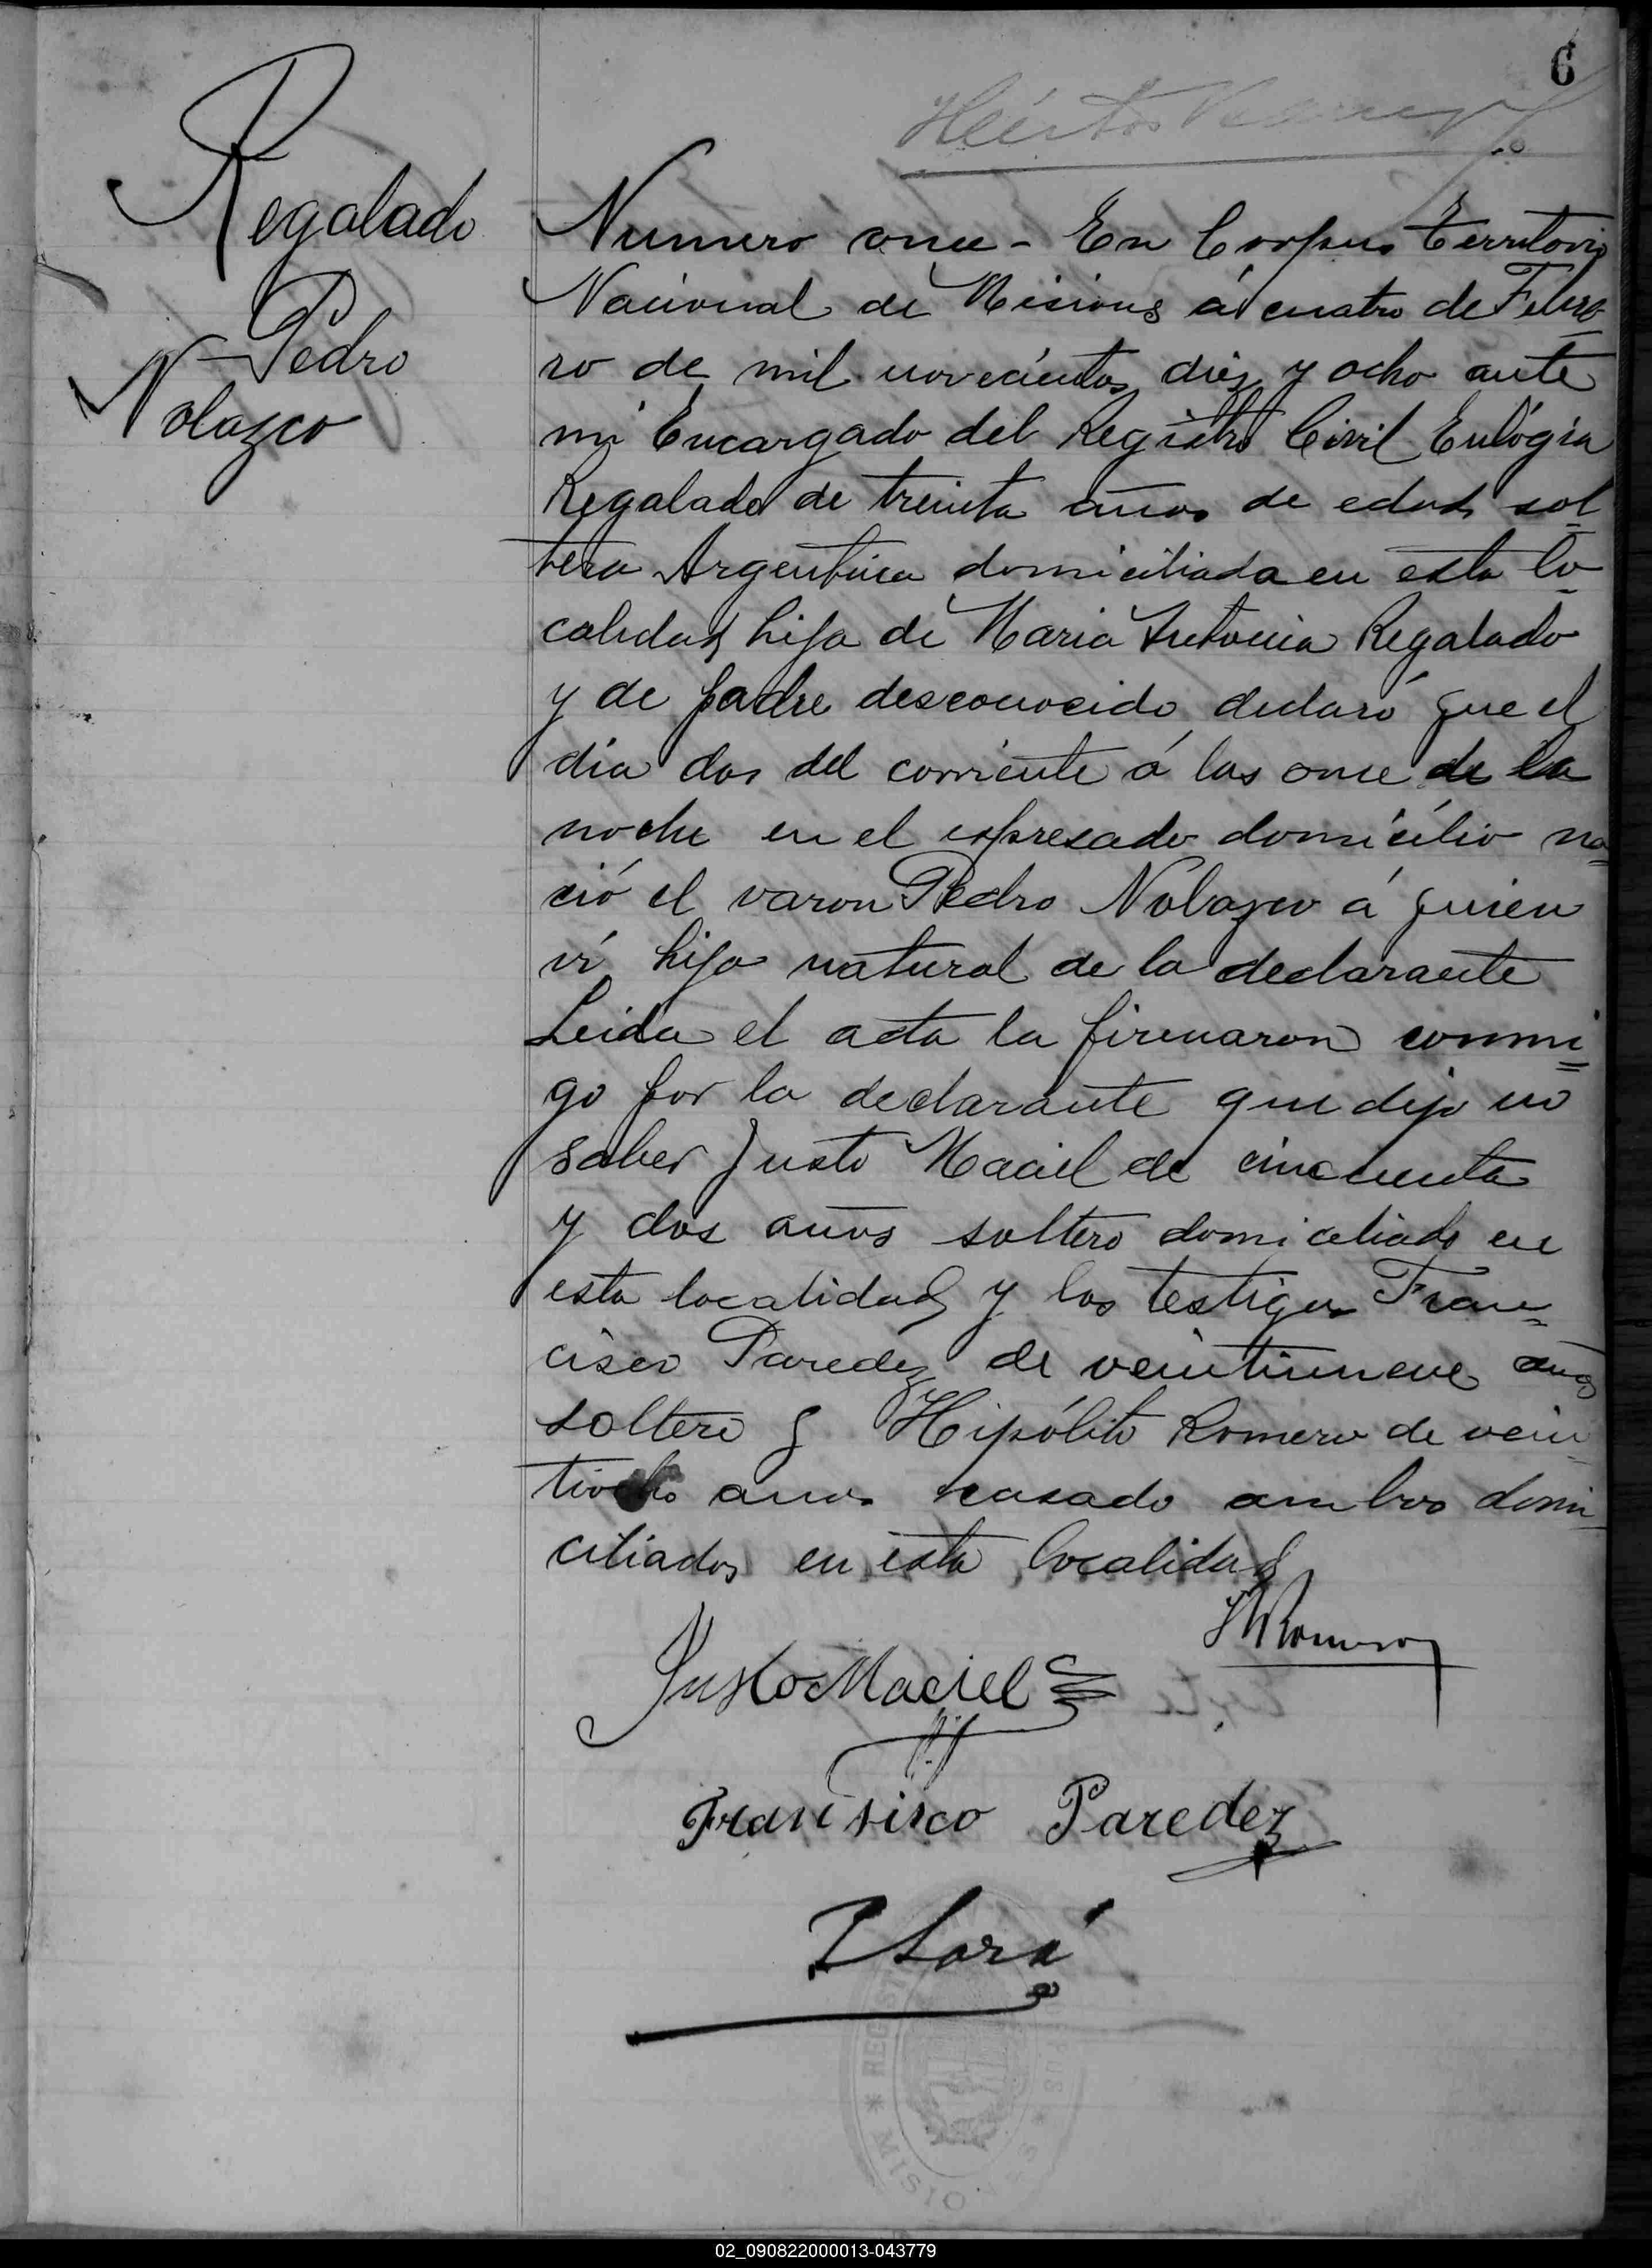 6
Regalado
Pedro
Nolazco
Numero once - En Corpus Territorio
Nacional de Misiones á cuatro de Febre
ro de mil novecientos diez y ocho ante
mi Encargado del Registro Civil Eulógia
Regalado de treinta años de edad sol
tera Argentina domiciliada en esta lo
calidad hija de Maria Antonia Regalado
y de padre desconocido declaró que el
dia dos del corriente á las once de la
noche en el espresado domicílio na
ció el varon Pedro Nolazco á quien
ví hijo natural de la declarante
Leida el acta la firmaron conmi
go por la declarante que dijo no
saber Justo Maciel de cincuenta
y dos años soltero domiciliado en
esta localidad y los testigos Fran
cisco Paredez de veintinueve años
soltero y Hipólito Romero de vein
tiocho anos casado ambos domi
ciliados en esta localidad
H Romero
Justo Maciel
Fransisco Paredez
REGIST
MISIO
02_090822000013-043779